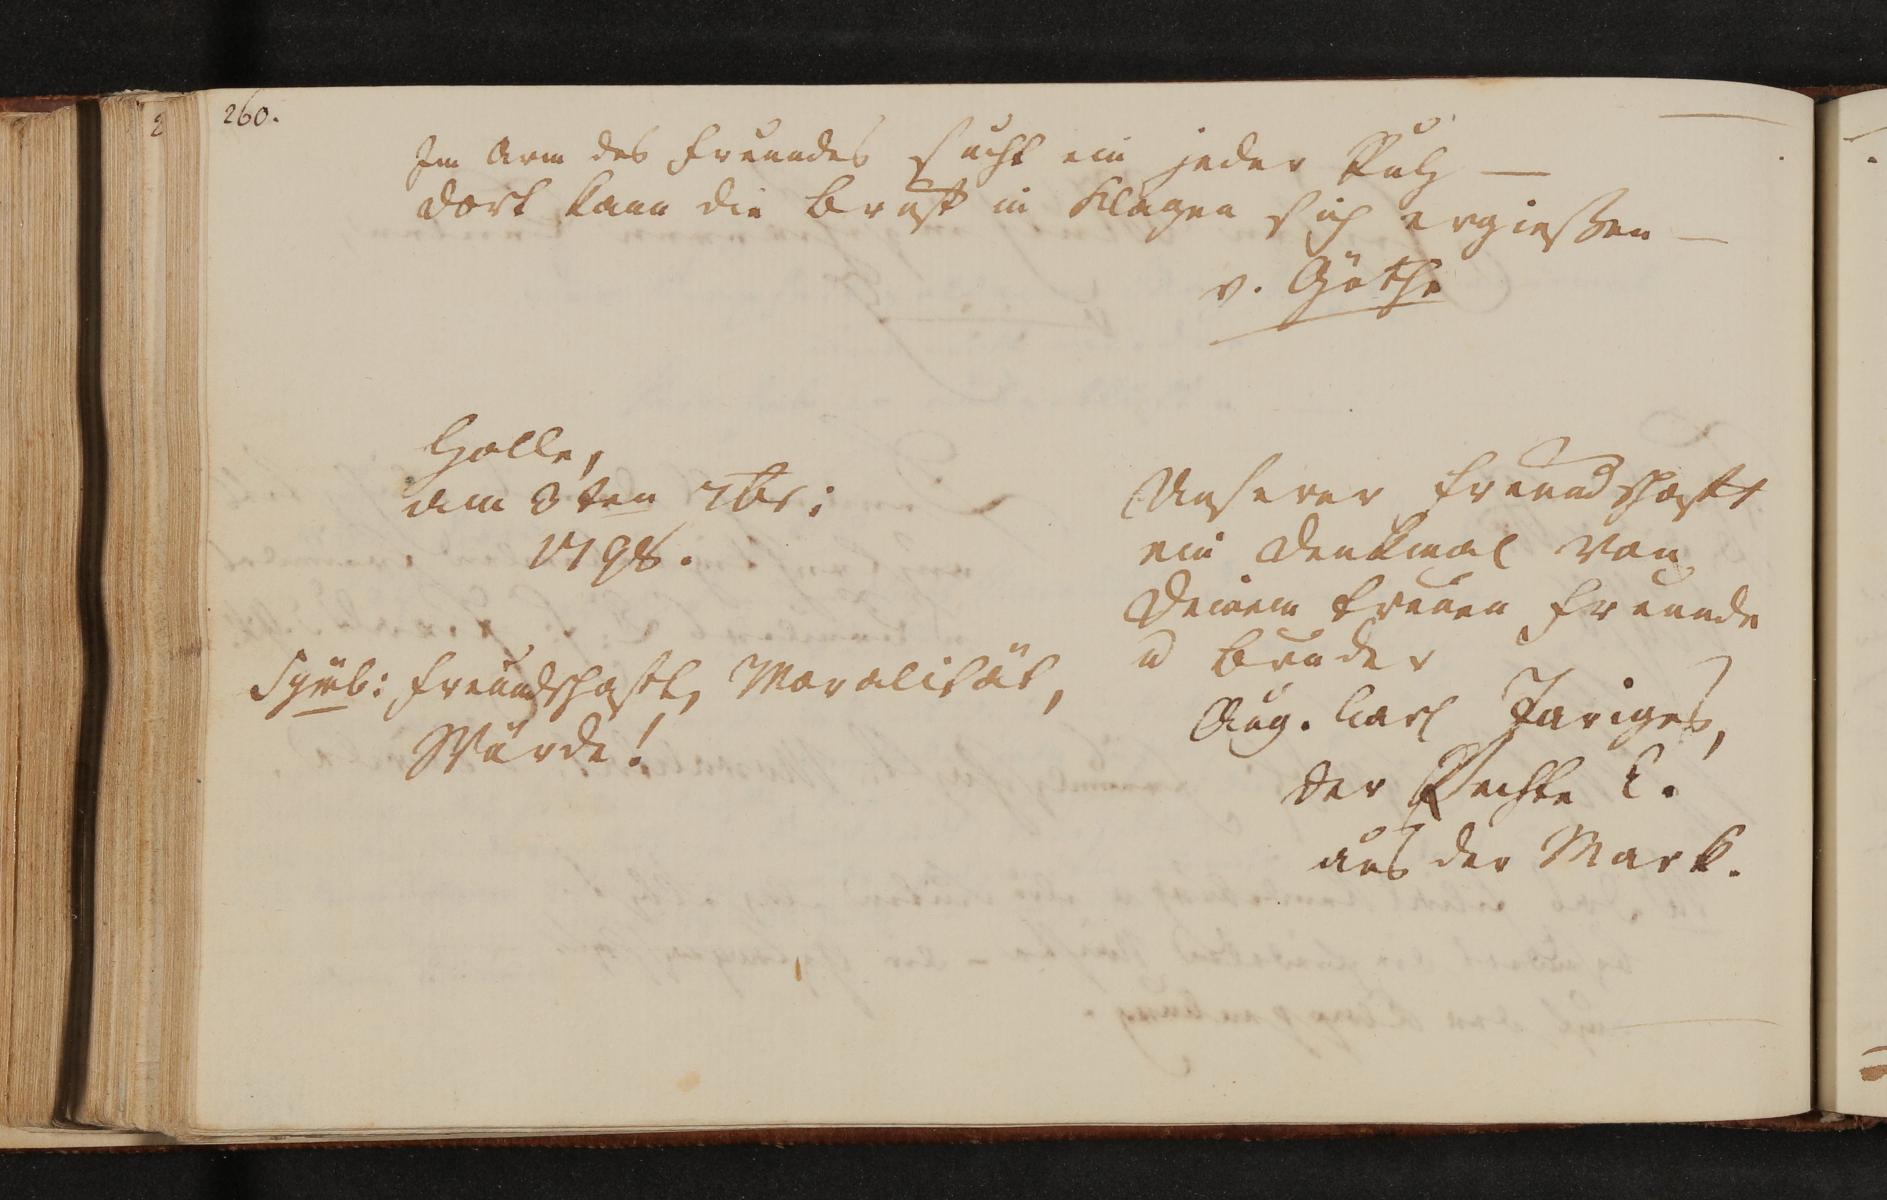 260.
Im Arm des Freundes sucht ein jeder Ruh —
dort kann die Brust in Klagen sich ergießen —
v. Göthe
Halle,
am 3ten 7br:
1798.
Symb: Freundschaft, Moralität,
Würde!
Unserer Freundschaft
ein Denkmal von
Deinem treuen Freunde
u Bruder
Aug. Carl Jariges,
der Rechte C.
aus der Mark.